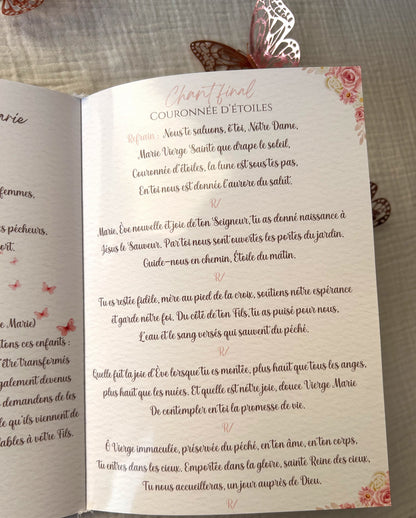 arie
femmes,
s pécheurs.
ort.
e Marie)
tons ces enfants :
'être transformés
galement devenus
demandons de les
le qu'ils viennent de
lables à votre Fils.
Chant final
COURONNÉE D'ÉTOILES
Refrain : Nous te saluons, ô toi, Notre Dame,
Marie Vierge Sainte que drape le soleil,
Couronnée d'étoiles, la lune est sous tes pas,
En toi nous est donnée l'aurore du salut.
R/
Marie, Ève nouvelle et joie de ton Seigneur, tu as donné naissance à
Jésus le Sauveur. Par toi nous sont ouvertes les portes du jardin.
Guide-nous en chemin, Étoile du matin.
R/
Tu es restée fidèle, mère au pied de la croix, soutiens notre espérance
et garde notre foi. Du côté de ton Fils, tu as puisé pour nous,
L'eau et le sang versés qui sauvent du péché.
R/
Quelle fut la joie d'Ève lorsque tu es montée, plus haut que tous les anges,
plus haut que les nuées. Et quelle est notre joie, douce Vierge Marie
De contempler en toi la promesse de vie.
R/
Ô Vierge immaculée, préservée du péché, en ton âme, en ton corps,
tu entres dans les cieux. Emportée dans la gloire, sainte Reine des cieux,
Tu nous accueilleras, un jour auprès de Dieu.
R/